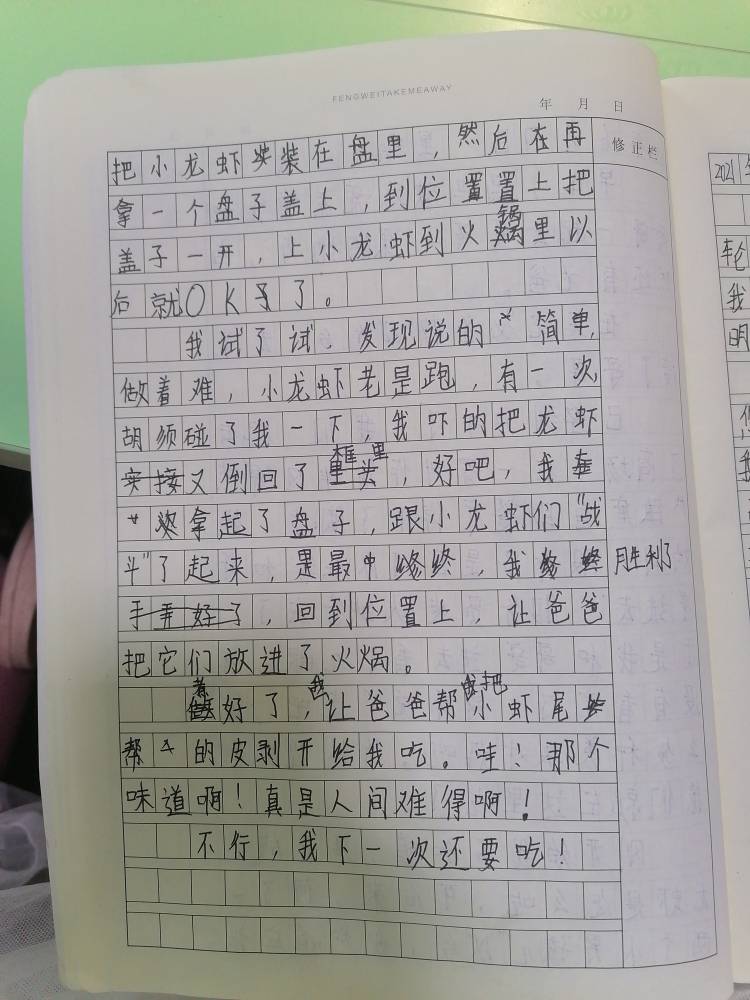 FENGWEITAKEMEAWAY
年 月 日
修正栏
把小龙虾装在盘里，然后在再
拿一个盘子盖上，到位置置上把
盖子一开，上小龙虾到火锅里以
后就OK了。
我试了试，发现说的简单，
做着难，小龙虾老是跑，有一次
胡须碰了我一下，我吓的把龙虾
又倒回了框里，好吧，我
拿起了盘子，跟小龙虾们“战
斗”了起来，是最终，我胜利了
，回到位置上，让爸爸
把它们放进了火焗。
煮好了，我让爸爸帮我把小虾尾
的皮剥开给我吃。哇！那个
味道啊！真是人间难得啊！
不行，我下一次还要吃！
2021
轮
我
明
一
我